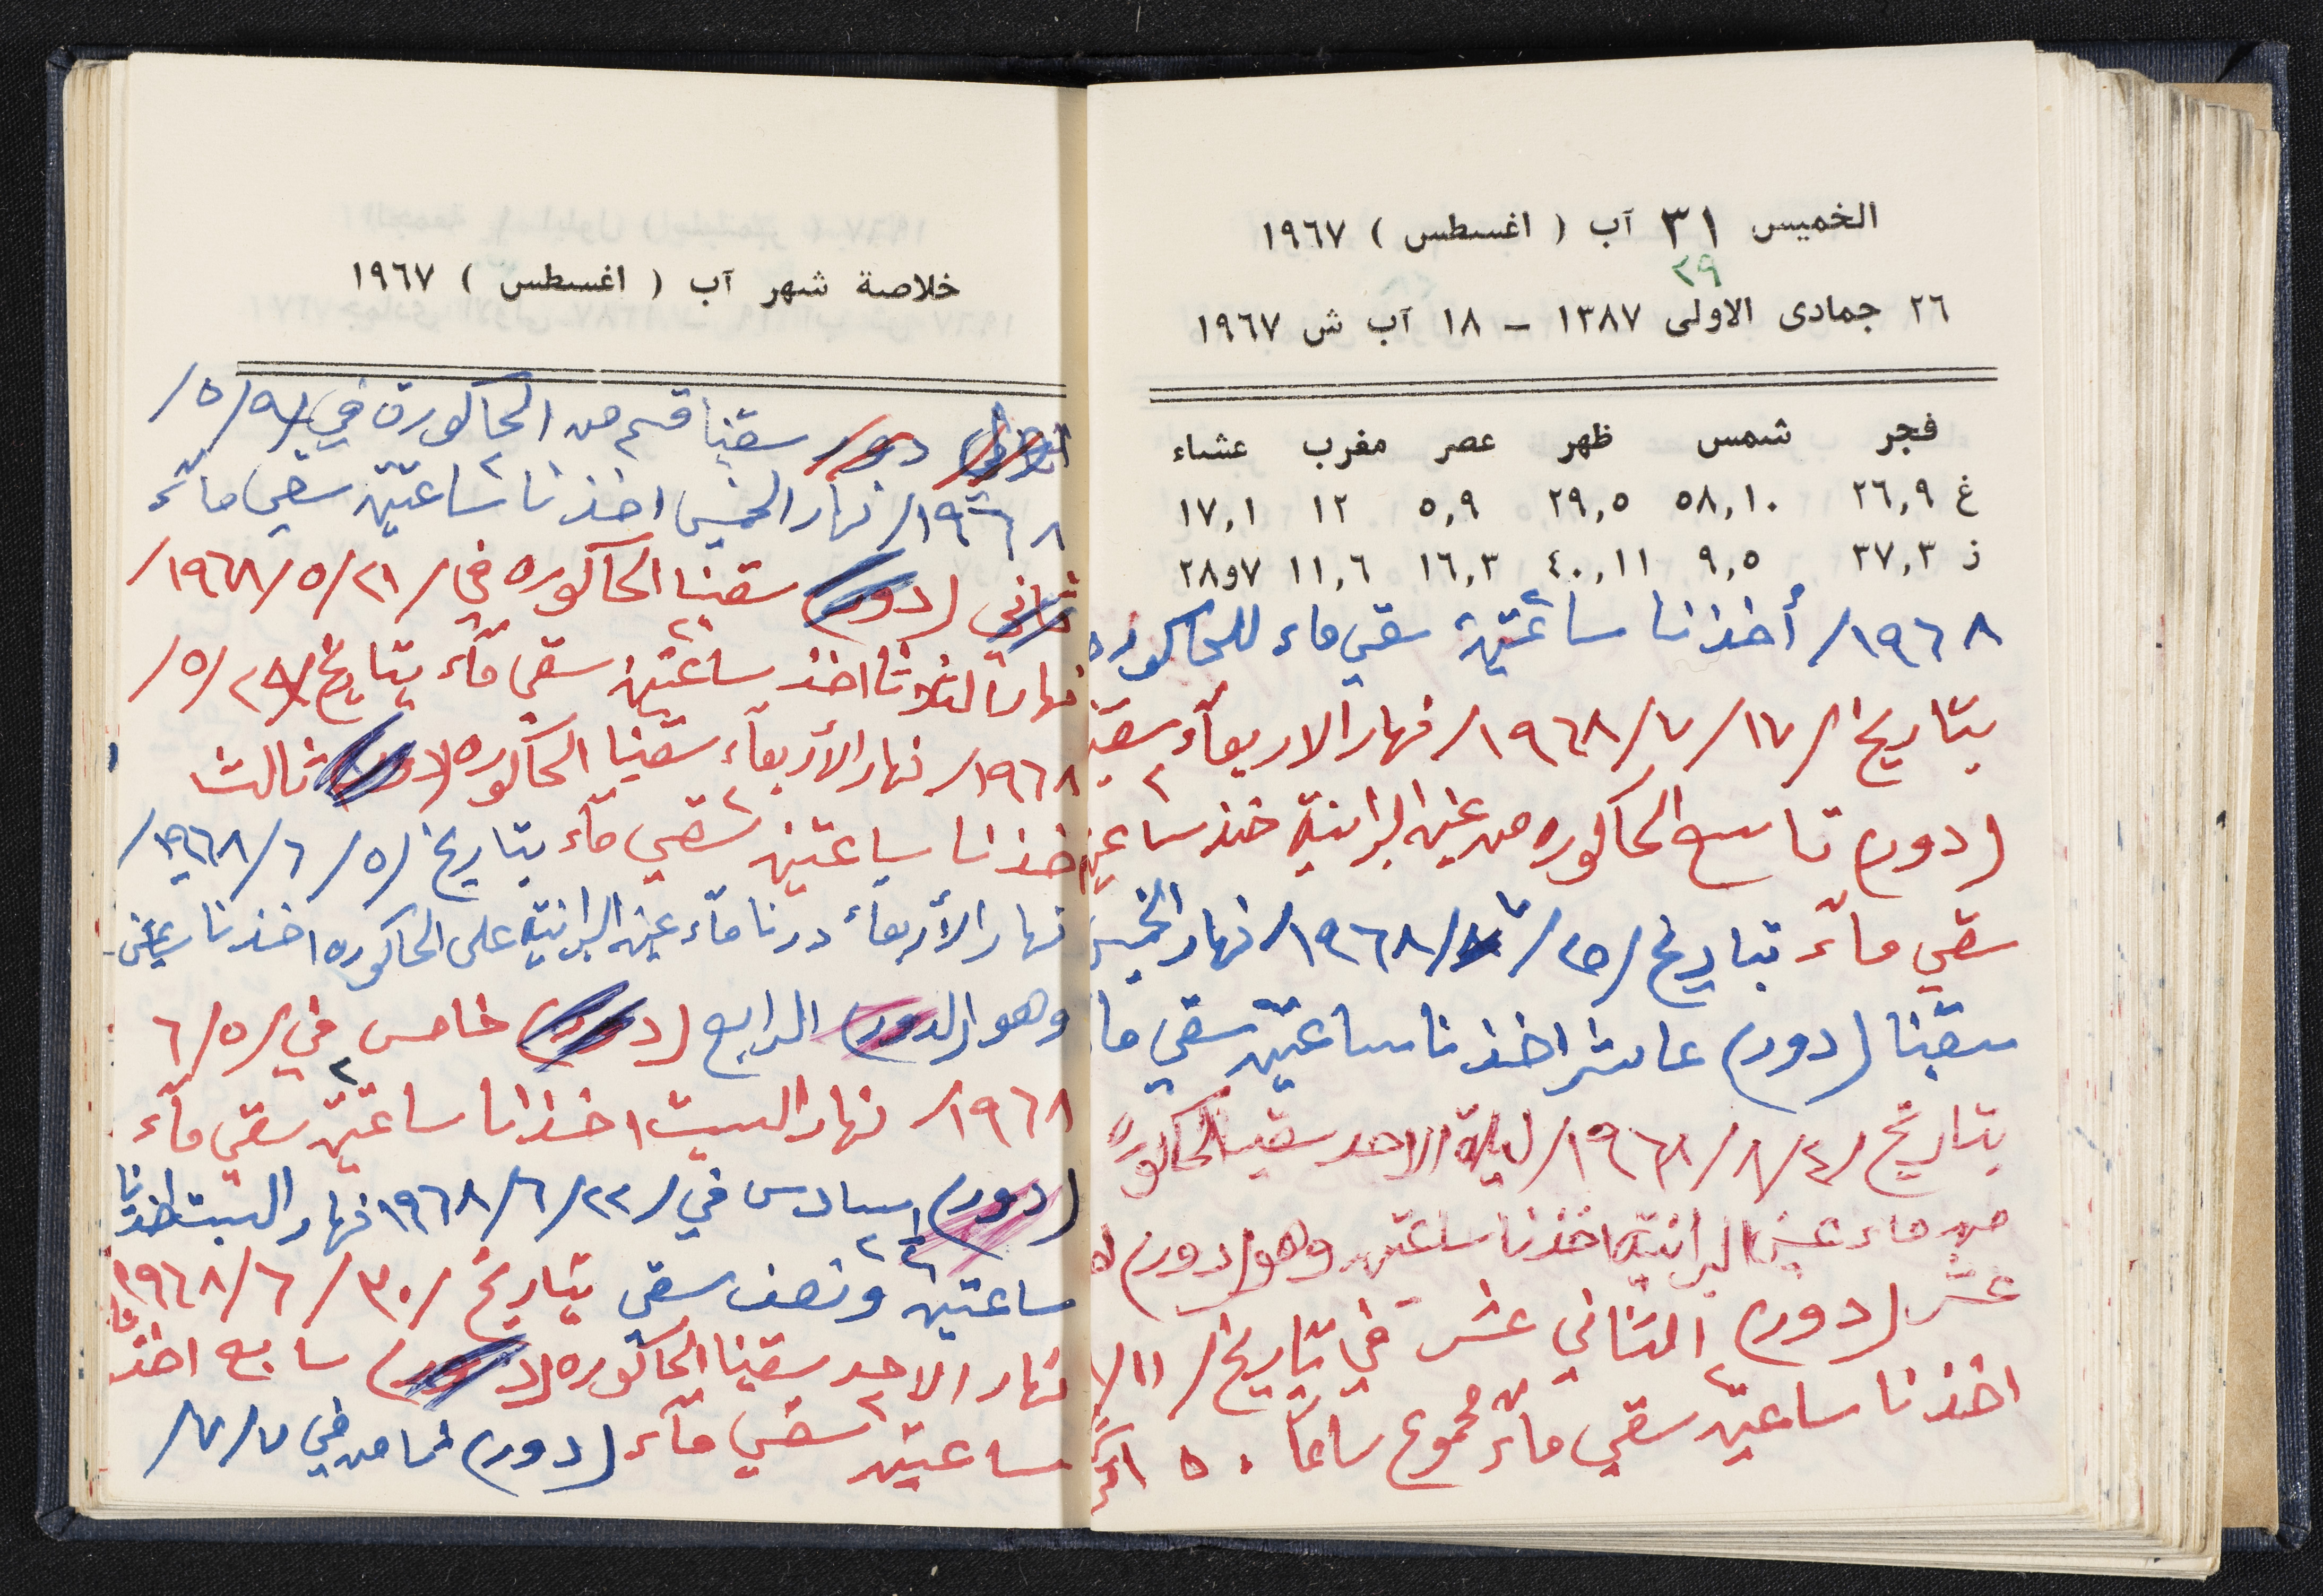 الخميس ٣١ آب ( اغسطس ) ١٩٦٧
٢٩
٢٦ جمادى الاولى ١٣٨٧ – ١٨ آب ش ١٩٦٧
فجر شمس ظهر عصر مغرب عشاء
غ ٢٦,٩ ٥٨,١٠ ٢٩,٥ ٥,٩ ١٢ ١٧,١
ز ٣٧,٣ ٩,٥ ٤٠,١١ ١٦,٣ ١١,٦ ٧و٢٨
١٩٦٨/ أخذنا ساعتين ٢ سقي ماء للحاكوره
بتاريخ /١٧/٧/١٩٦٨/ نهار الاربعآء سقينا
(دور) تاسع الحاكوره من عين البرانية خذ ساعتين ٢
سقي مآء بتاريخ /٢٥/٧/١٩٦٨/ نهار الخميس
سقينا (دور) عاشر اخذنا ساعتين سقي ماء
بتاريخ /٤/٨/١٩٦٨/ ليلة الاحد سقينا الحاكورة
من ماء عين البرانية اخذنا ساعتين وهو (دور)
عشر (دور) الثاني عشر في تاريخ /١١/
اخذنا ساعتين ٢ سقي مآء مجموع ساعاً ٥٠
خلاصة شهر آب ( اغسطس ) ١٩٦٧
دور سقينا قسم من الحاكورة في /٩/٥/
١٩٦٨/ نهار الخميس اخذنا ساعتين ٢ سقي مآء
ثاني (دور) سقينا الحاكوره في /٢١/٥/١٩٦٨/
نهار الثلاثا اخذ ساعتين ٢ سقي مآء بتاريخ /٢٩/٥/
١٩٦٨/ نهار الأربعآء سقينا الحاكوره (دور) ثالث
اخذنا ساعتين ٢ سقي مآء بتاريخ /٥/٦/١٩٦٨/
نهار الأربعآء درنا مآء عين البرانية على الحاكوره اخذنا ساعتين
وهو (الدور) الرابع (دور) خامس في /٥/٦
١٩٦٨/ نهار السبت اخذنا ساعتين ٢ سقي مآء
(دور) سادس في /٢٢/٦/١٩٦٨ نهار السبت اخذنا
ساعتين ونصف سقي بتاريخ /٣٠/٦/١٩٦٨
نهار الاحد سقينا الحاكوره (دور) سابع اخذنا
ساعتين ٢ سقي مآء (دور) ثامن في ٧/٧/